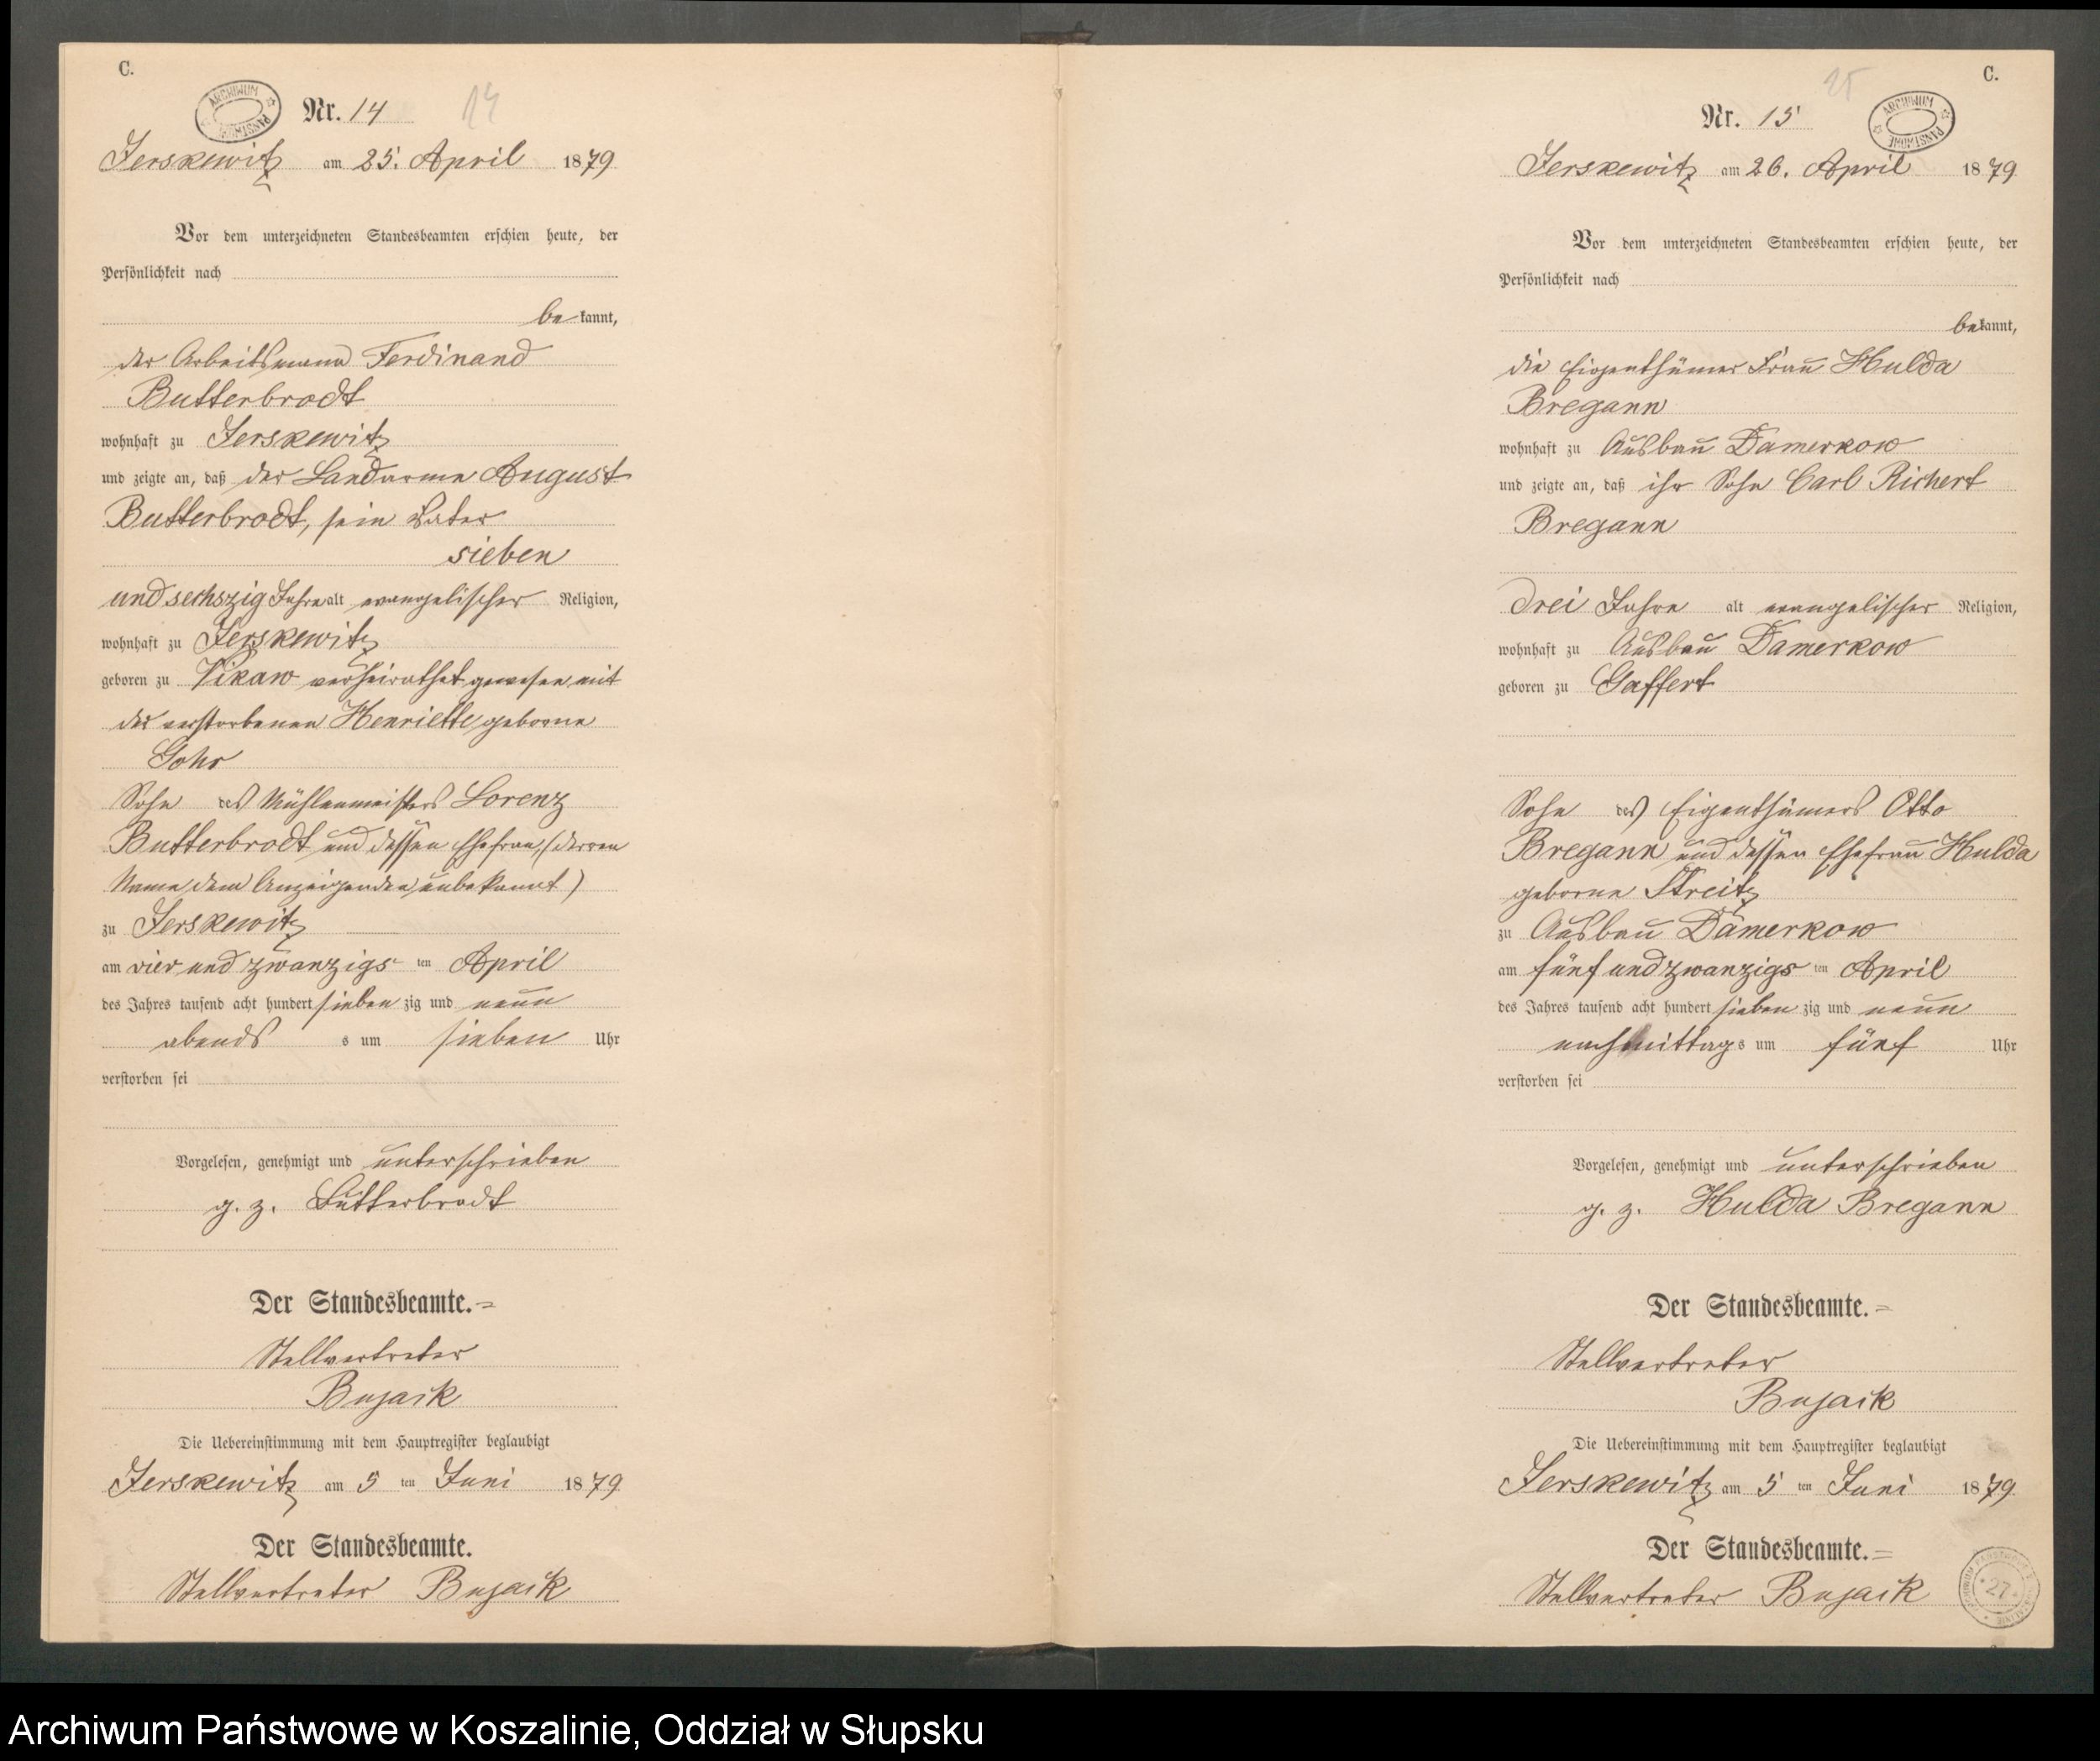 C.
ARCHIWUM PAŃSTWOWE
Nr. 14
14
Jerskewitz am 25. April 1879
Vor dem unterzeichneten Standesbeamten erschien heute, der
Persönlichkeit nach
bekannt,
der Arbeitsmann Ferdinand
Butterbrodt
wohnhaft zu Jerskewitz
und zeigte an, daß der Landarme August
Butterbrodt, sein Vater
sieben
und sechszig Jahre alt evangelischer Religion,
wohnhaft zu Jerskewitz
geboren zu Vixow verheirathet gewesen mit
der verstorbenen Henriette geborne
Gohr
Sohn des Mühlenmeisters Lorenz
Butterbrodt und dessen Ehefrau, (derren
Name dem Anzeigenden unbekannt)
zu Jerskewitz
am vier und zwanzigs ten April
des Jahres tausend acht hundert sieben zig und neun
abends s um sieben Uhr
verstorben sei
Vorgelesen, genehmigt und unterschrieben
g. z. Butterbrodt
Der Standesbeamte.=
Stellvertreter
Bujack
Die Uebereinstimmung mit dem Hauptregister beglaubigt
Jerskewitz am 5 ten Juni 1879
Der Standesbeamte.
Stellvertreter Bujack
C.
15
Nr. 15
ARCHIWUM PAŃSTWOWE
Jerskewitz am 26. April 1879
Vor dem unterzeichneten Standesbeamten erschien heute, der
Persönlichkeit nach
bekannt,
die Eigenthümer Frau Hulda
Bregann
wohnhaft zu Ausbau Damerkow
und zeigte an, daß ihr Sohn Carl Richert
Bregann
drei Jahre alt evangelischer Religion,
wohnhaft zu Ausbau Damerkow
geboren zu Gaffert
Sohn des Eigenthümers Otto
Bregann und dessen Ehefrau Hulda
geborne Streitz
zu Ausbau Damerkow
am fünf und zwanzigs ten April
des Jahres tausend acht hundert sieben zig und neun
nachmittags um fünf Uhr
verstorben sei
Vorgelesen, genehmigt und unterschrieben
g. z. Hulda Bregann
Der Standesbeamte.=
Stellvertreter
Bujack
Die Uebereinstimmung mit dem Hauptregister beglaubigt
Jerskewitz am 5 ten Juni 1879
Der Standesbeamte.=
Stellvertreter Bujack
27
Archiwum Państwowe w Koszalinie, Oddział w Słupsku